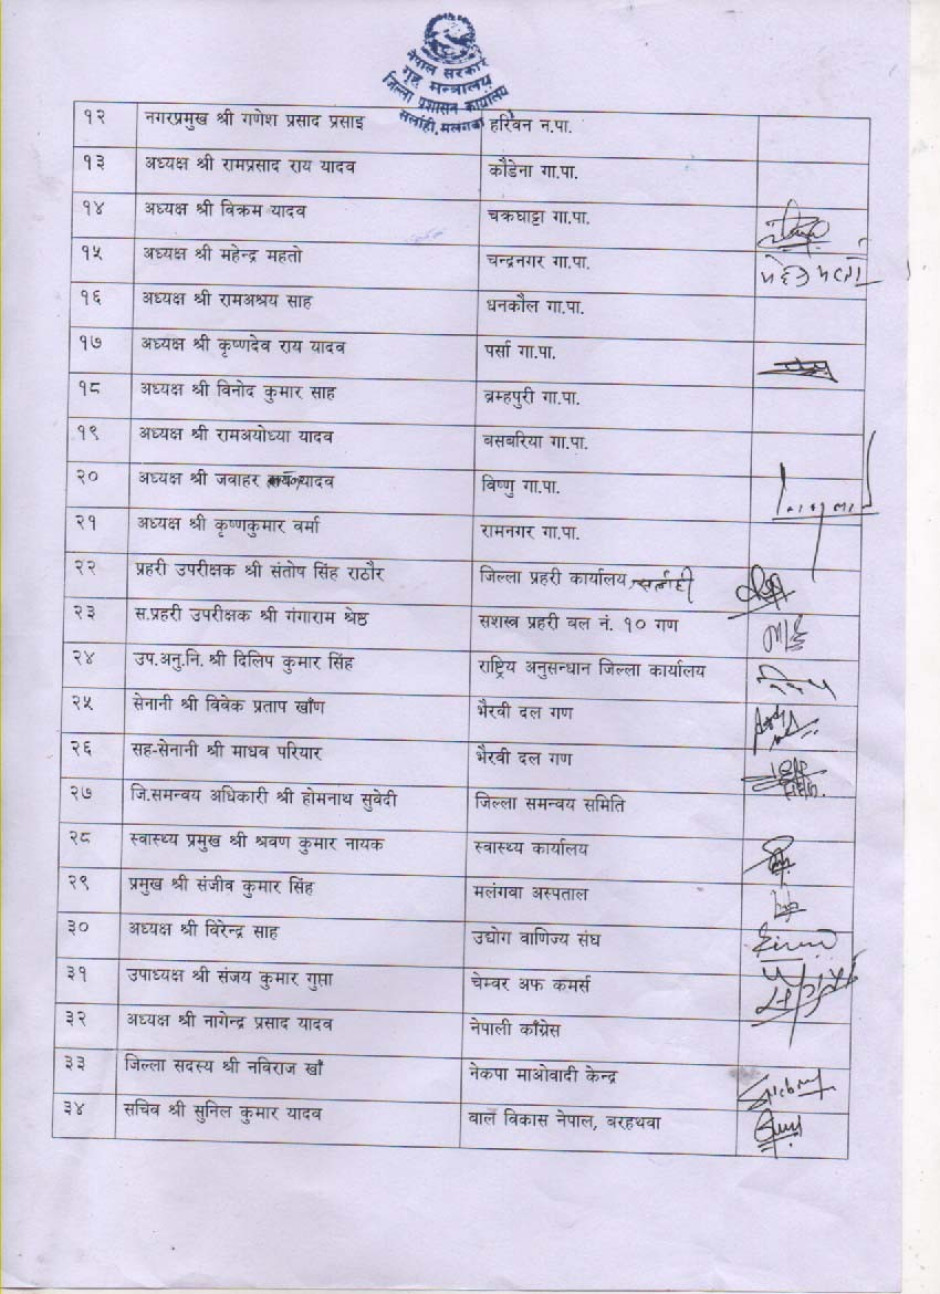 नेपाल सरकार
गृह मन्त्रालय
जिल्ला प्रशासन कार्यालय
सर्लाही, मलंगवा
१२ नगरप्रमुख श्री गणेश प्रसाद प्रसाइ हरिवन न.पा.
१३ अध्यक्ष श्री रामप्रसाद राय यादव कौडेना गा.पा.
१४ अध्यक्ष श्री विक्रम यादव चक्रघाट्टा गा.पा.
१५ अध्यक्ष श्री महेन्द्र महतो चन्द्रनगर गा.पा.
१६ अध्यक्ष श्री रामअश्रय साह धनकौल गा.पा.
१७ अध्यक्ष श्री कृष्णदेव राय यादव पर्सा गा.पा.
१८ अध्यक्ष श्री विनोद कुमार साह ब्रम्हपुरी गा.पा.
१९ अध्यक्ष श्री रामअयोध्या यादव बसबरिया गा.पा.
२० अध्यक्ष श्री जवाहर यादव विष्णु गा.पा.
२१ अध्यक्ष श्री कृष्णकुमार वर्मा रामनगर गा.पा.
२२ प्रहरी उपरीक्षक श्री संतोष सिंह राठौर जिल्ला प्रहरी कार्यालय, सर्लाही
२३ स.प्रहरी उपरीक्षक श्री गंगाराम श्रेष्ठ सशस्त्र प्रहरी बल नं. १० गण
२४ उप.अनु.नि. श्री दिलिप कुमार सिंह राष्ट्रिय अनुसन्धान जिल्ला कार्यालय
२५ सेनानी श्री विवेक प्रताप खाँण भैरवी दल गण
२६ सह-सेनानी श्री माधव परियार भैरवी दल गण
२७ जि.समन्वय अधिकारी श्री होमनाथ सुवेदी जिल्ला समन्वय समिति
२८ स्वास्थ्य प्रमुख श्री श्रवण कुमार नायक स्वास्थ्य कार्यालय
२९ प्रमुख श्री संजीव कुमार सिंह मलंगवा अस्पताल
३० अध्यक्ष श्री विरेन्द्र साह उद्योग वाणिज्य संघ
३१ उपाध्यक्ष श्री संजय कुमार गुप्ता चेम्वर अफ कमर्स
३२ अध्यक्ष श्री नागेन्द्र प्रसाद यादव नेपाली काँग्रेस
३३ जिल्ला सदस्य श्री नविराज खाँ नेकपा माओवादी केन्द्र
३४ सचिव श्री सुनिल कुमार यादव वाल विकास नेपाल, बरहथवा